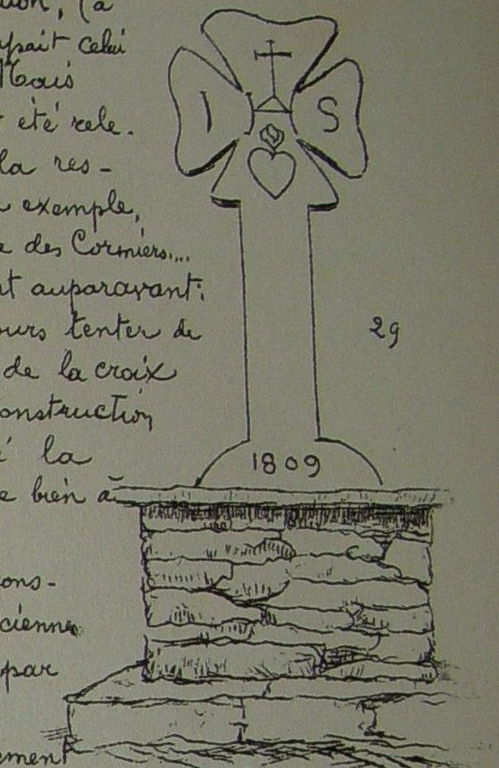 (a
pait celui
Mais
été rele.
la res-
exemple,
des Cormiers....
t auparavant:
ours tenter de
de la croix
onstruction
la
e bien à
ons-
cienne
par
ement
I S
29
1809